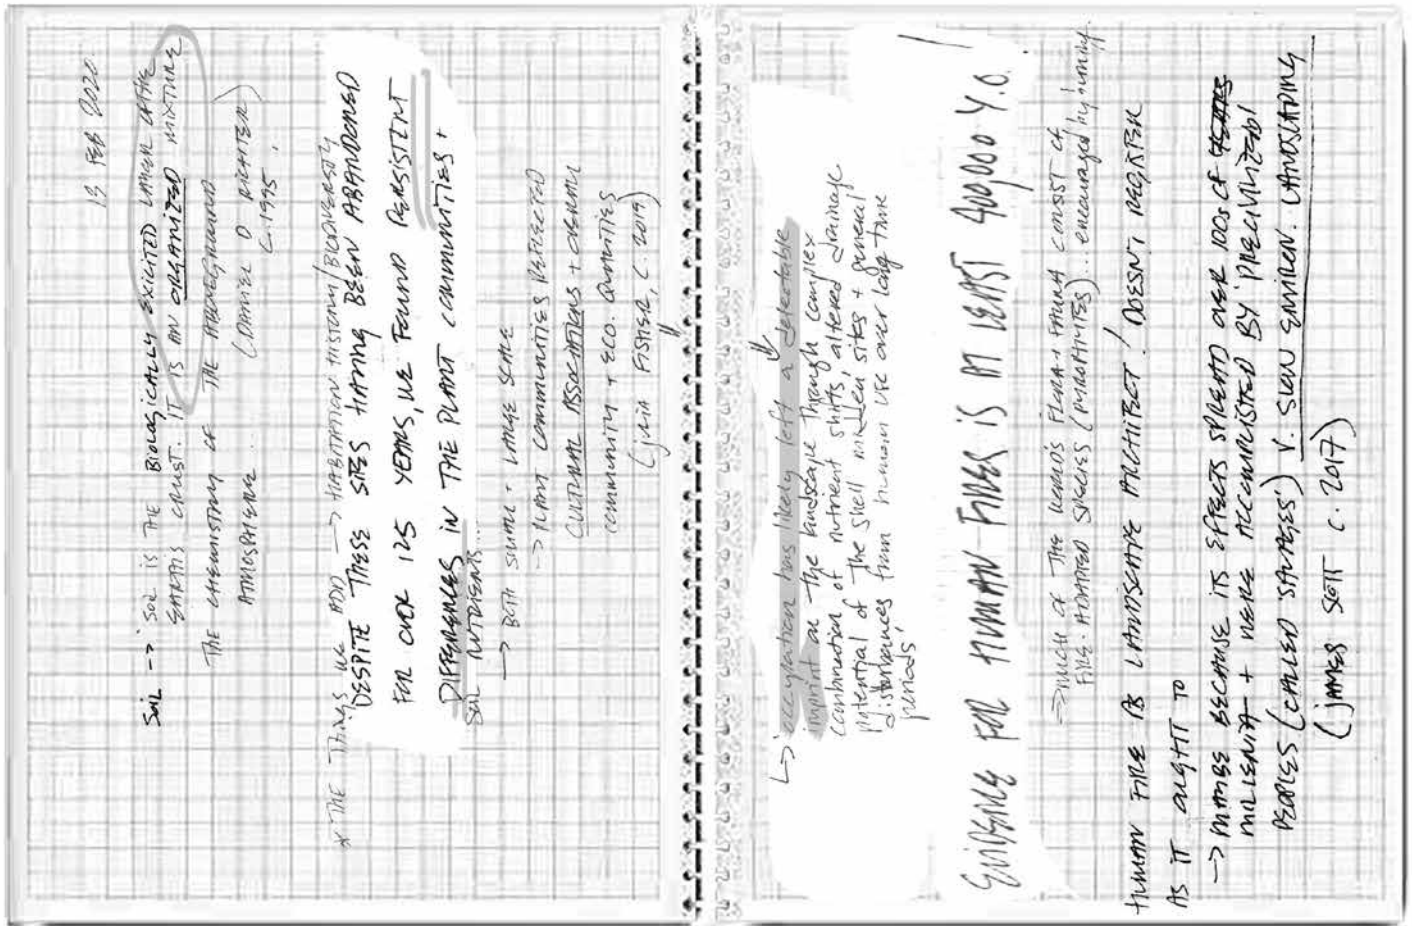 13 FEB 2020
Soil --> 'SOIL IS THE BIOLOGICALLY EXCITED LAYER OF THE
EARTH'S CRUST. IT IS AN ORGANIZED MIXTURE
THE CHEMISTRY OF THE ABOVEGROUND
ATMOSPHERE ... (DANIEL D RICHTER)
C. 1995.
* THE Things WE ADD —> HABITATION HISTORY/BIODIVERSITY
DESPITE THESE SITES HAVING BEEN ABANDONED
FOR OVER 125 YEARS, WE FOUND PERSISTENT
DIFFERENCES IN THE PLANT COMMUNITIES +
SOIL NUTRIENTS...
—> BOTH SMALL + LARGE SCALE
—> PLANT COMMUNITIES REFLECTED
CULTURAL ASSOCIATIONS + OVERALL
COMMUNITY + ECO. QUALITIES
(JULIA FISHER, C. 2019)
↳ 'occupation has likely left a detectable
imprint on the landscape through complex
combination of nutrient shifts, altered drainage
potential of the shell midden sites + general
disturbances from human use over long time
periods'
EVIDENCE FOR HUMAN FIRES IS AT LEAST 400,000 Y.O.!
—> MUCH OF THE WORLD'S FLORA + FAUNA CONSIST OF
FIRE-ADAPTED SPECIES (PYROPHYTES)... encouraged by burning.
HUMAN FIRE AS LANDSCAPE ARCHITECT! DOESN'T REGISTER
AS IT OUGHT TO
—> MAYBE BECAUSE ITS EFFECTS SPREAD OVER 100s OF YEARS
MILLENIA + WERE ACCOMPLISHED BY 'PRECIVILIZED'
PEOPLES (CALLED 'SAVAGES') V. SLOW ENVIREN. LANDSCAPING
(JAMES SCOTT C. 2017)